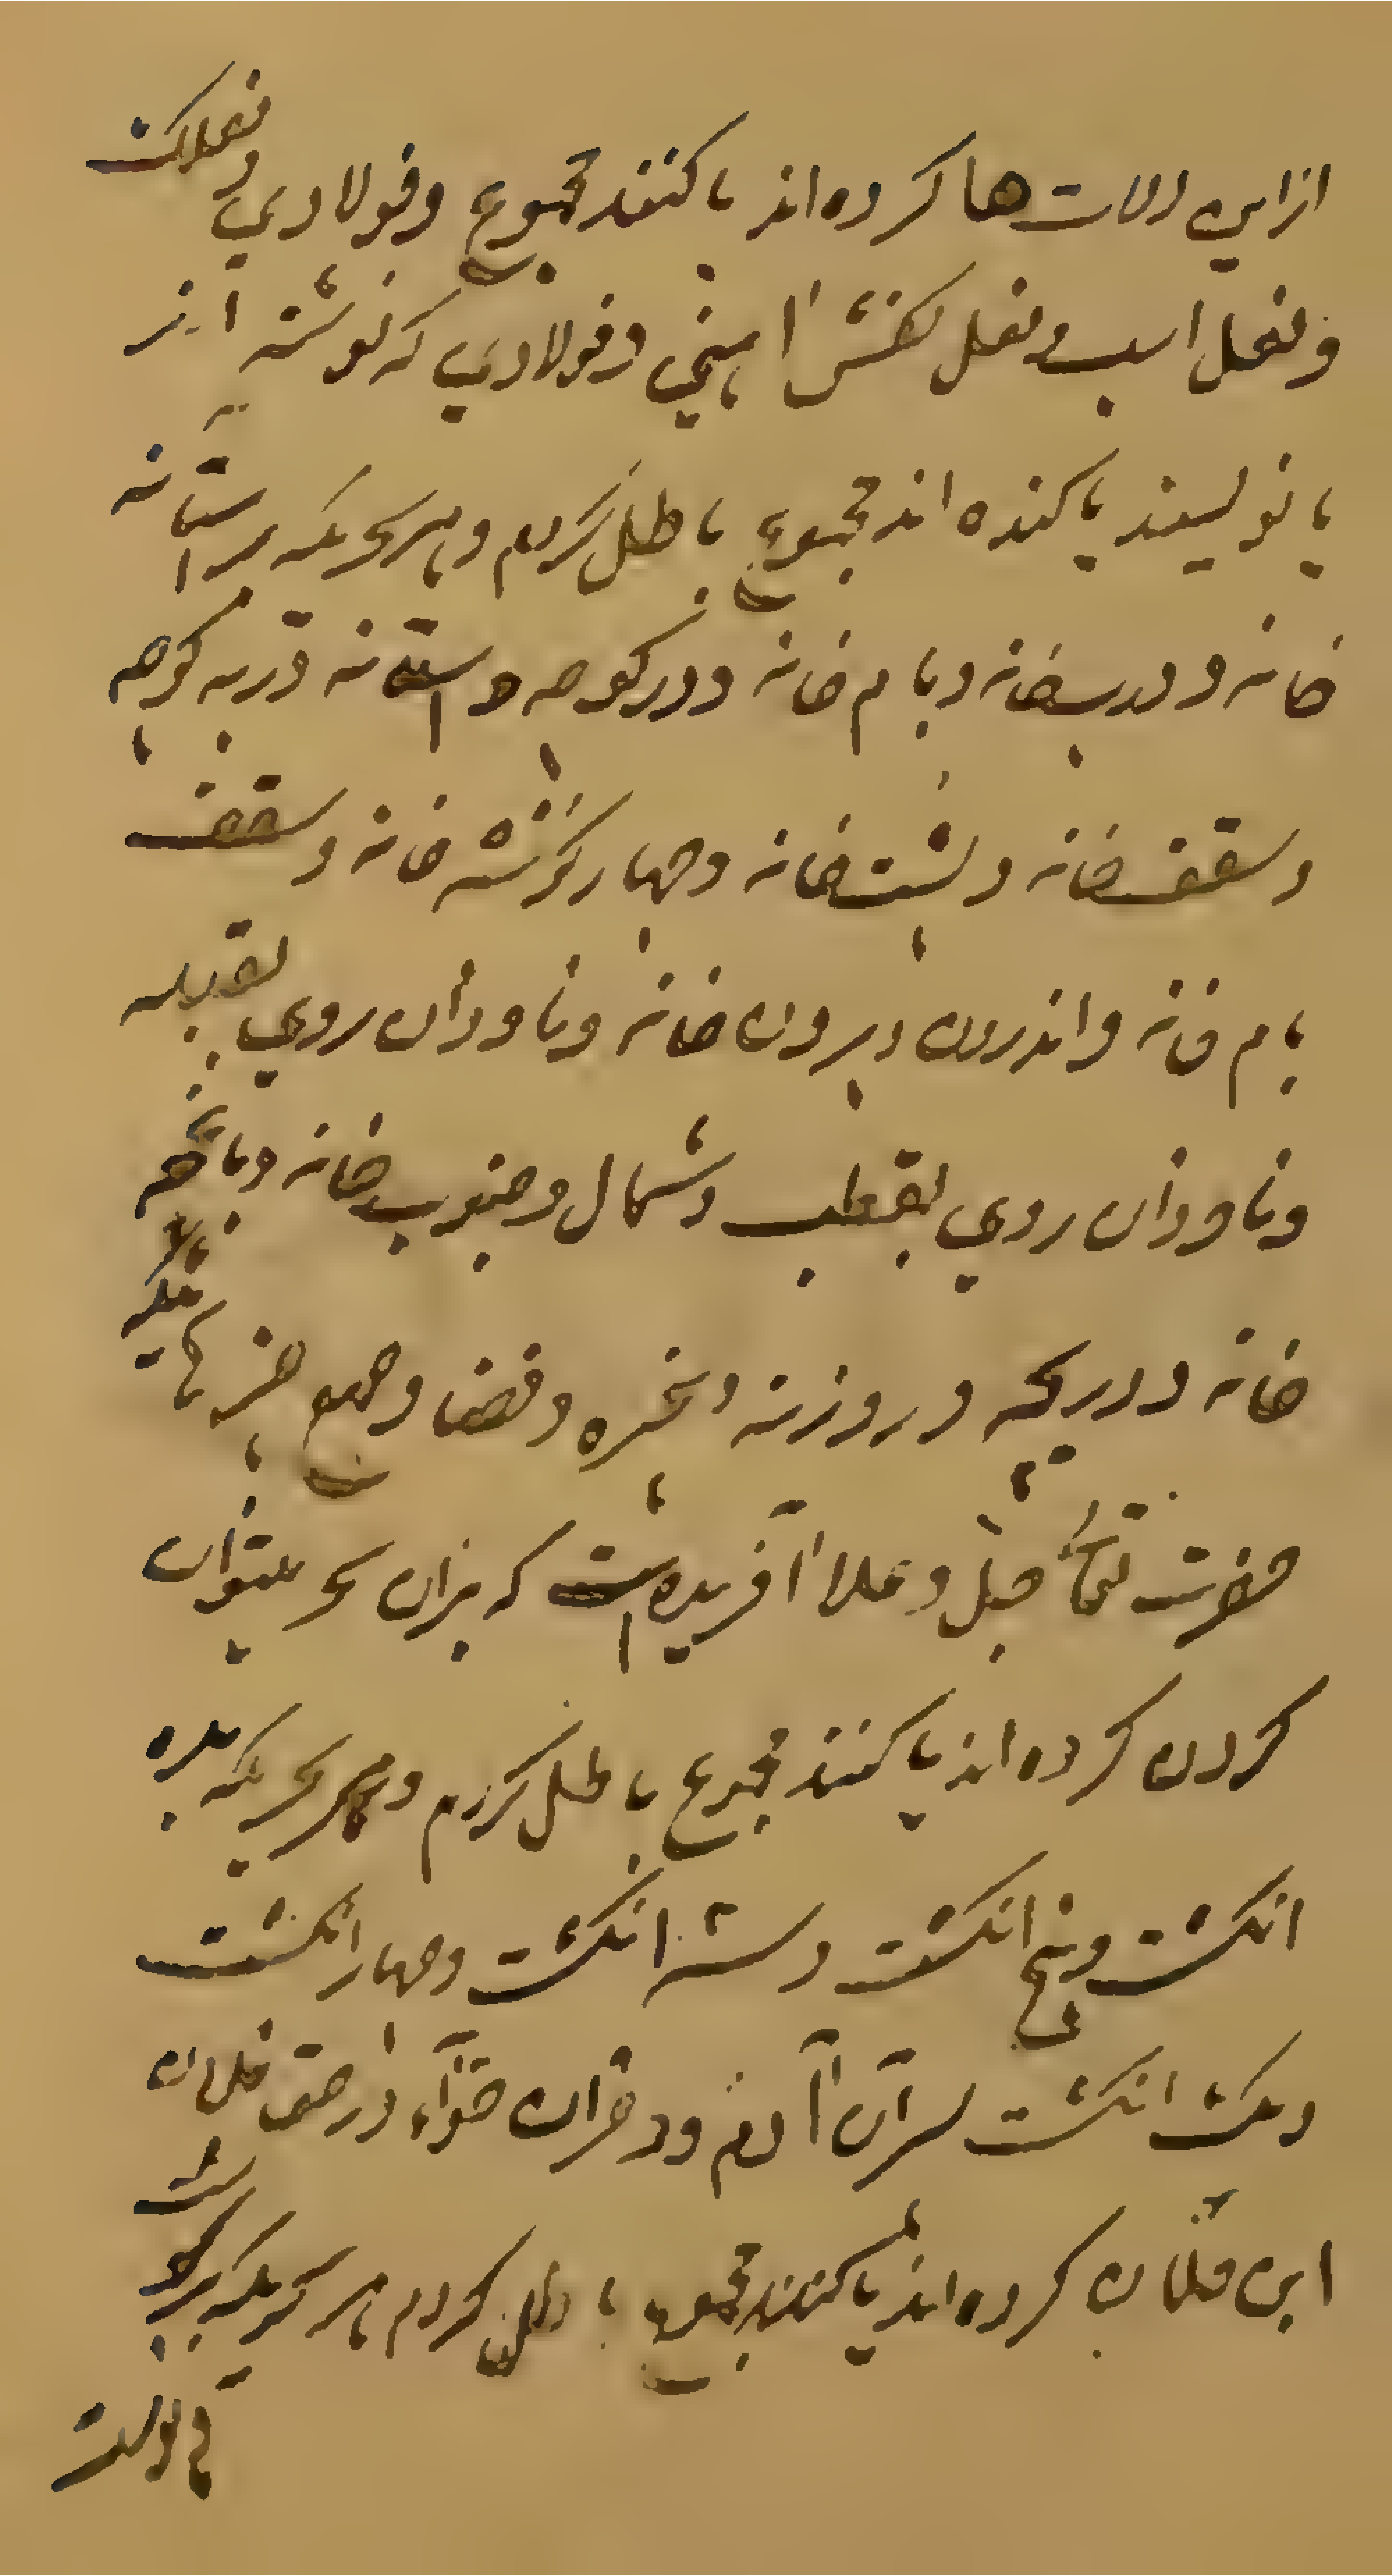 از این الات ها کرده اند یا کنند مجموع و فولادی و نعلات
و نعل اسب و نعل کفش اهنی و فولادی که نوشته اند
یا نویسند یا کنده اند مجموع باطل کردم و هر سحریکه بر استانه
خانه و درب خانه و بام خانه و در کوچه و استانه درب کوچه
و سقف خانه و پشت خانه و چهار گوشه خانه و سقف
بام خانه و اندرون و بیرون خانه و ناودان روی بقبله
و ناودان روی بقطب و شمال و جنوب خانه و باغچه
خانه و دریچه و روزنه و پنجره و فضا و جمیع چیزهائیکه
حضرت جل و علا آفریده است که بران سحر میتوان
کردن کرده اند یا کنند مجموع باطل کردم و هر سحریکه بده
انگشت و پنج انگشت و سه انگشت و چهار انگشت
و یک انگشت پسران آدم و دختران حوّا در حق فلان
ابن فلان کرده اند یا کنند مجموع باطل کردم هر سحریکه بر پوست